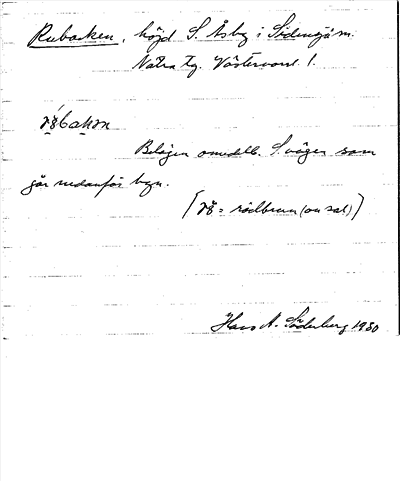 Rubacken, höjd S. Åsby i Sidensjö sn.
Nätra tg. Västernorrl. l.
Belägen omedelb. S. vägen som
går nedanför byn.
= rödbrun (om sat)]
Hans A. Söderberg 1930